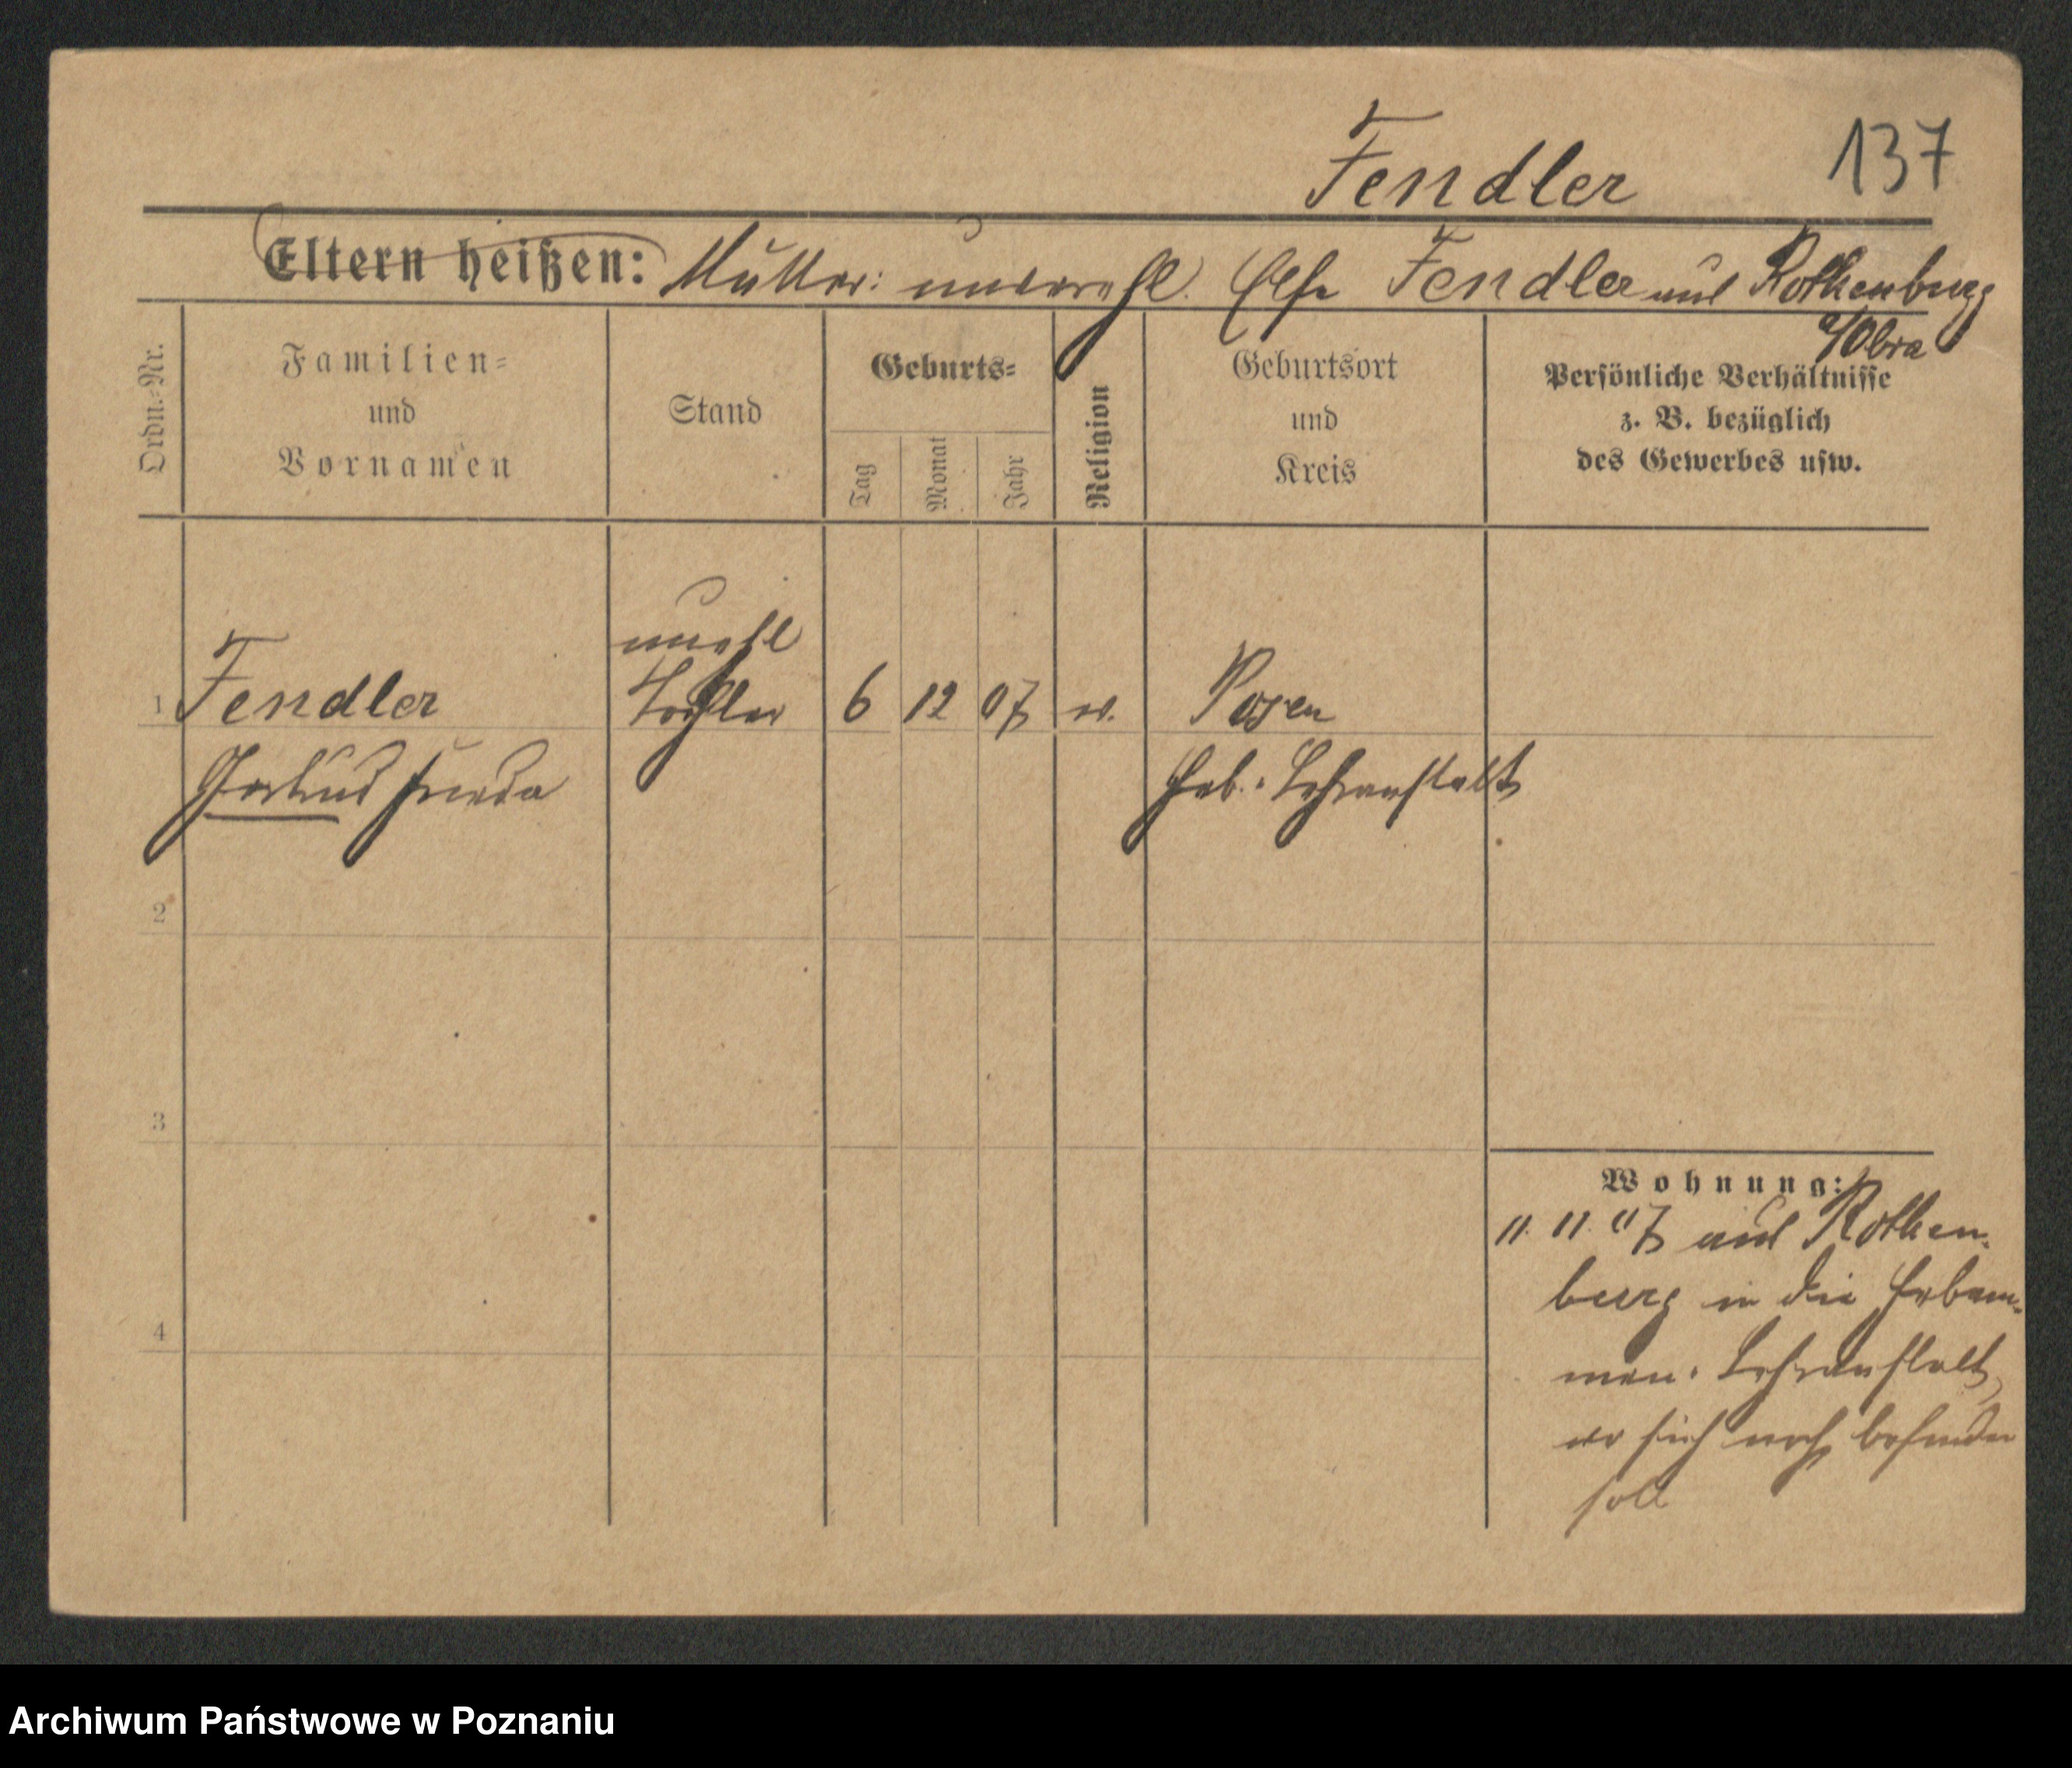 Fendler 137
Eltern heißen: Mutter: unverehl. Else Fendler aus Rothenburg
a/Obra
Ordn.-Nr.
Familien-
und
Vornamen
Stand
Geburts-
Tag
Monat
Jahr
Religion
Geburtsort
und
Kreis
Persönliche Verhältnisse
z. B. bezüglich
des Gewerbes usw.
unehl
1 Fendler Tochter 6 12 07 Posen
Gertrud Frieda Heb. Lehranstalt
2
3
4
Wohnung:
11. 11. 07 aus Rothen-
burg in die Hebam-
men-Lehranstalt,
wo sich noch befinden
soll
Archiwum Państwowe w Poznaniu